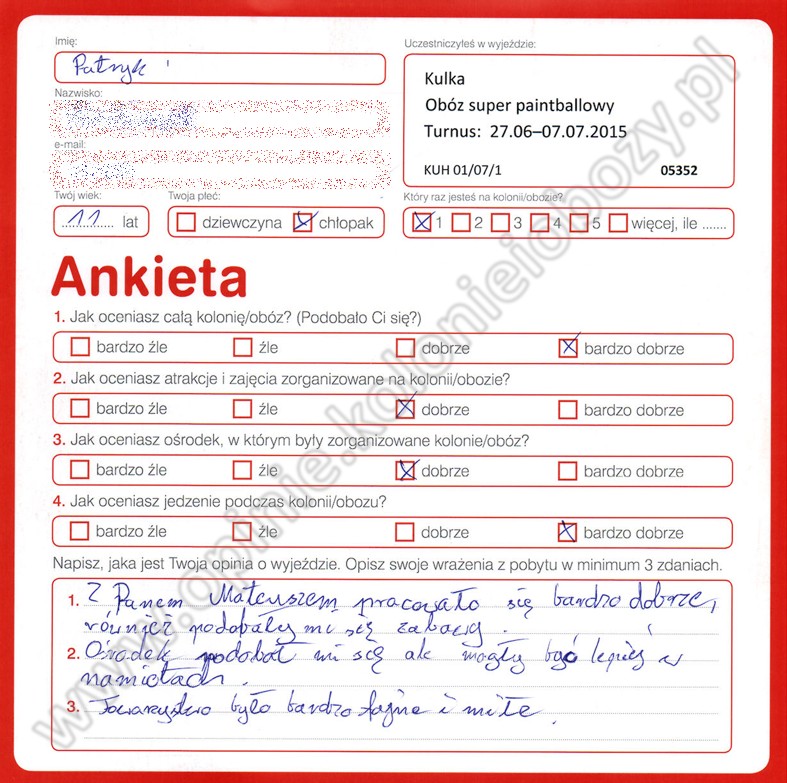 Imię:
Patryk
Nazwisko:
e-mail:
Twój wiek:
11 lat
Twoja płeć:
dziewczyna chłopak
Uczestniczyłeś w wyjeździe:
Kulka
Obóz super paintballowy
Turnus: 27.06–07.07.2015
KUH 01/07/1 05352
Który raz jesteś na kolonii/obozie?
1 2 3 4 5 więcej, ile .......
Ankieta
1. Jak oceniasz całą kolonię/obóz? (Podobało Ci się?)
bardzo źle źle dobrze bardzo dobrze
2. Jak oceniasz atrakcje i zajęcia zorganizowane na kolonii/obozie?
bardzo źle źle dobrze bardzo dobrze
3. Jak oceniasz ośrodek, w którym były zorganizowane kolonie/obóz?
bardzo źle źle dobrze bardzo dobrze
4. Jak oceniasz jedzenie podczas kolonii/obozu?
bardzo źle źle dobrze bardzo dobrze
Napisz, jaka jest Twoja opinia o wyjeździe. Opisz swoje wrażenia z pobytu w minimum 3 zdaniach.
1. Z Panem Mateuszem pracowało się bardzo dobrze,
również podobały mi się zabawy.
2. Ośrodek podobał mi się ale mogły być lepiej w
namiotach.
3. Towarzystwo było bardzo fajne i miłe.
www.opinie.kolonieiobozy.pl